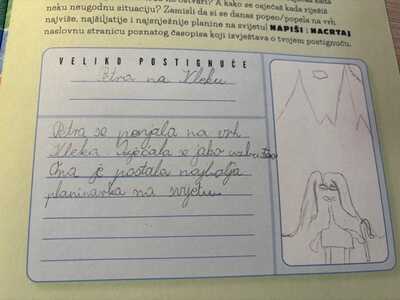 neku neugodnu situaciju? Zamisli da si se danas popeo/popela na vrh
najviše, najšiljatije i najsnježnije planine na svijetu! NAPIŠI I NACRTAJ
naslovnu stranicu poznatog časopisa koji izvještava o tvojem postignuću.
VELIKO POSTIGNUĆE
Petra na Kleku
Petra se penjala na vrh
Kleka. Osjećala se jako uzbu
Ona je postala najbolja
planinarka na svijetu.